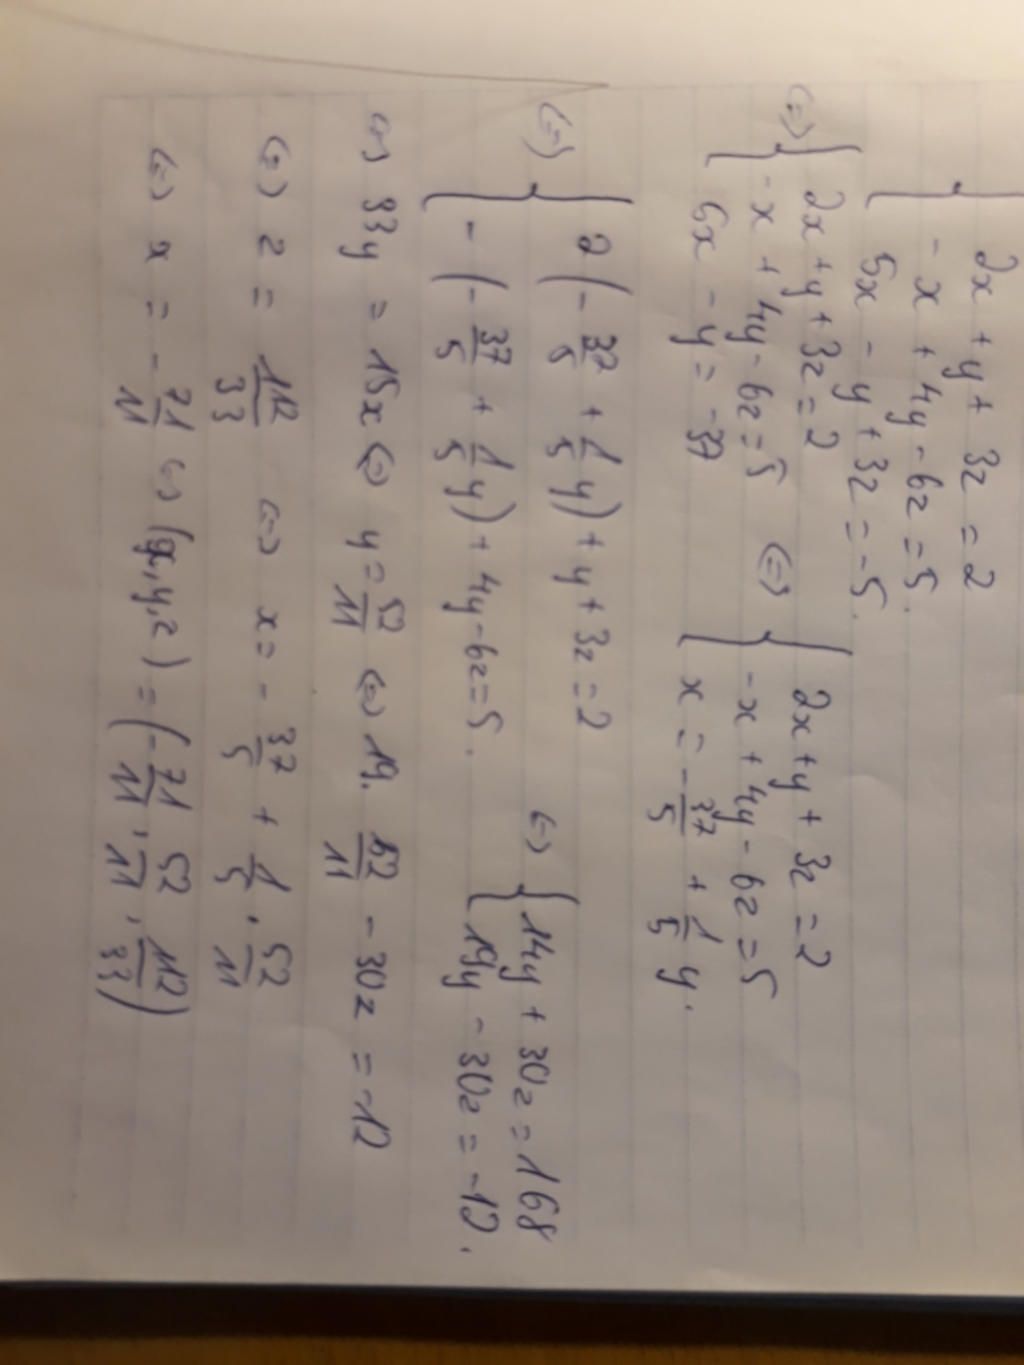 2x + y + 3z = 2
- x + 4y - 6z = 5.
5x - y + 3z = -5.
(=) 2x + y + 3z = 2
-x + 4y - 6z = 5
6x - y = -37
(=) 2x + y + 3z = 2
-x + 4y - 6z = 5
x = -37/5 + 1/5 y.
(=) 2 (-37/5 + 1/5 y) + y + 3z = 2
- (-37/5 + 1/5 y) + 4y - 6z = 5.
(=) 14y + 30z = 168
19y - 30z = -12.
(=) 33y = 15x (=) y = 52/11 (=) 19. 52/11 - 30z = -12
(=) z = 112/33 (=) x = - 37/5 + 1/5 . 52/11
(=) x = - 71/11 (=) (x, y, z) = (-71/11, 52/11, 112/33)